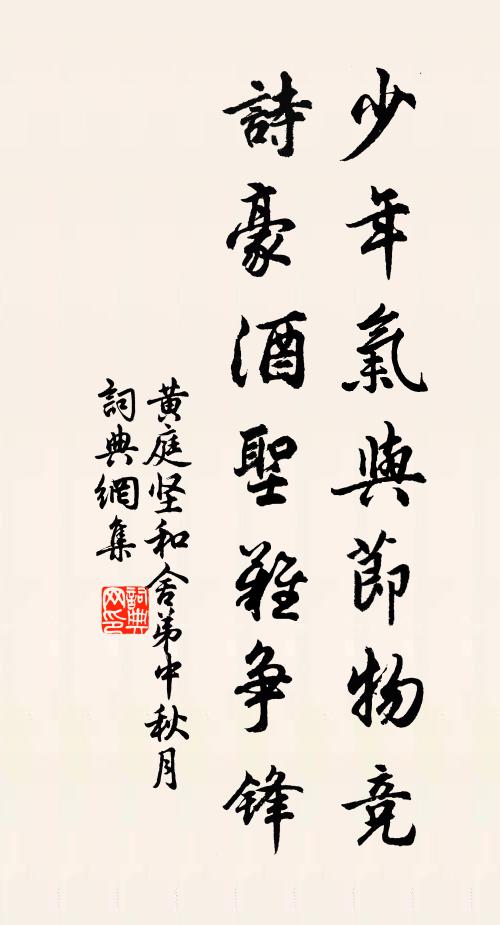 少年氣與節物競
詩豪酒聖難争锋
黄庭坚和舍弟中秋月
詞典網集
詞典网印